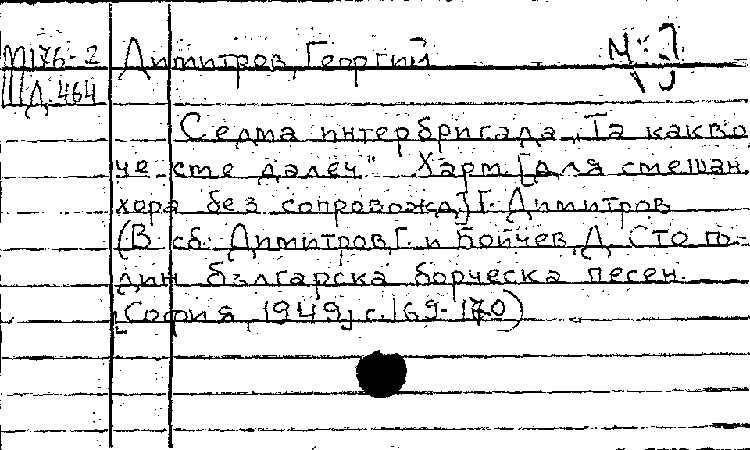 М176-2 Димитров, Георгий
Ш Д.464
Седма интербригада „Та какво
че сте далеч" Харм. [для смешан.
хора без сопровожд.] Г. Димитров
(В сб. Димитров, Г. и Бойчев, Д. Сто го-
дин българска борческа песен.
[София, 1949] с. 169-170)